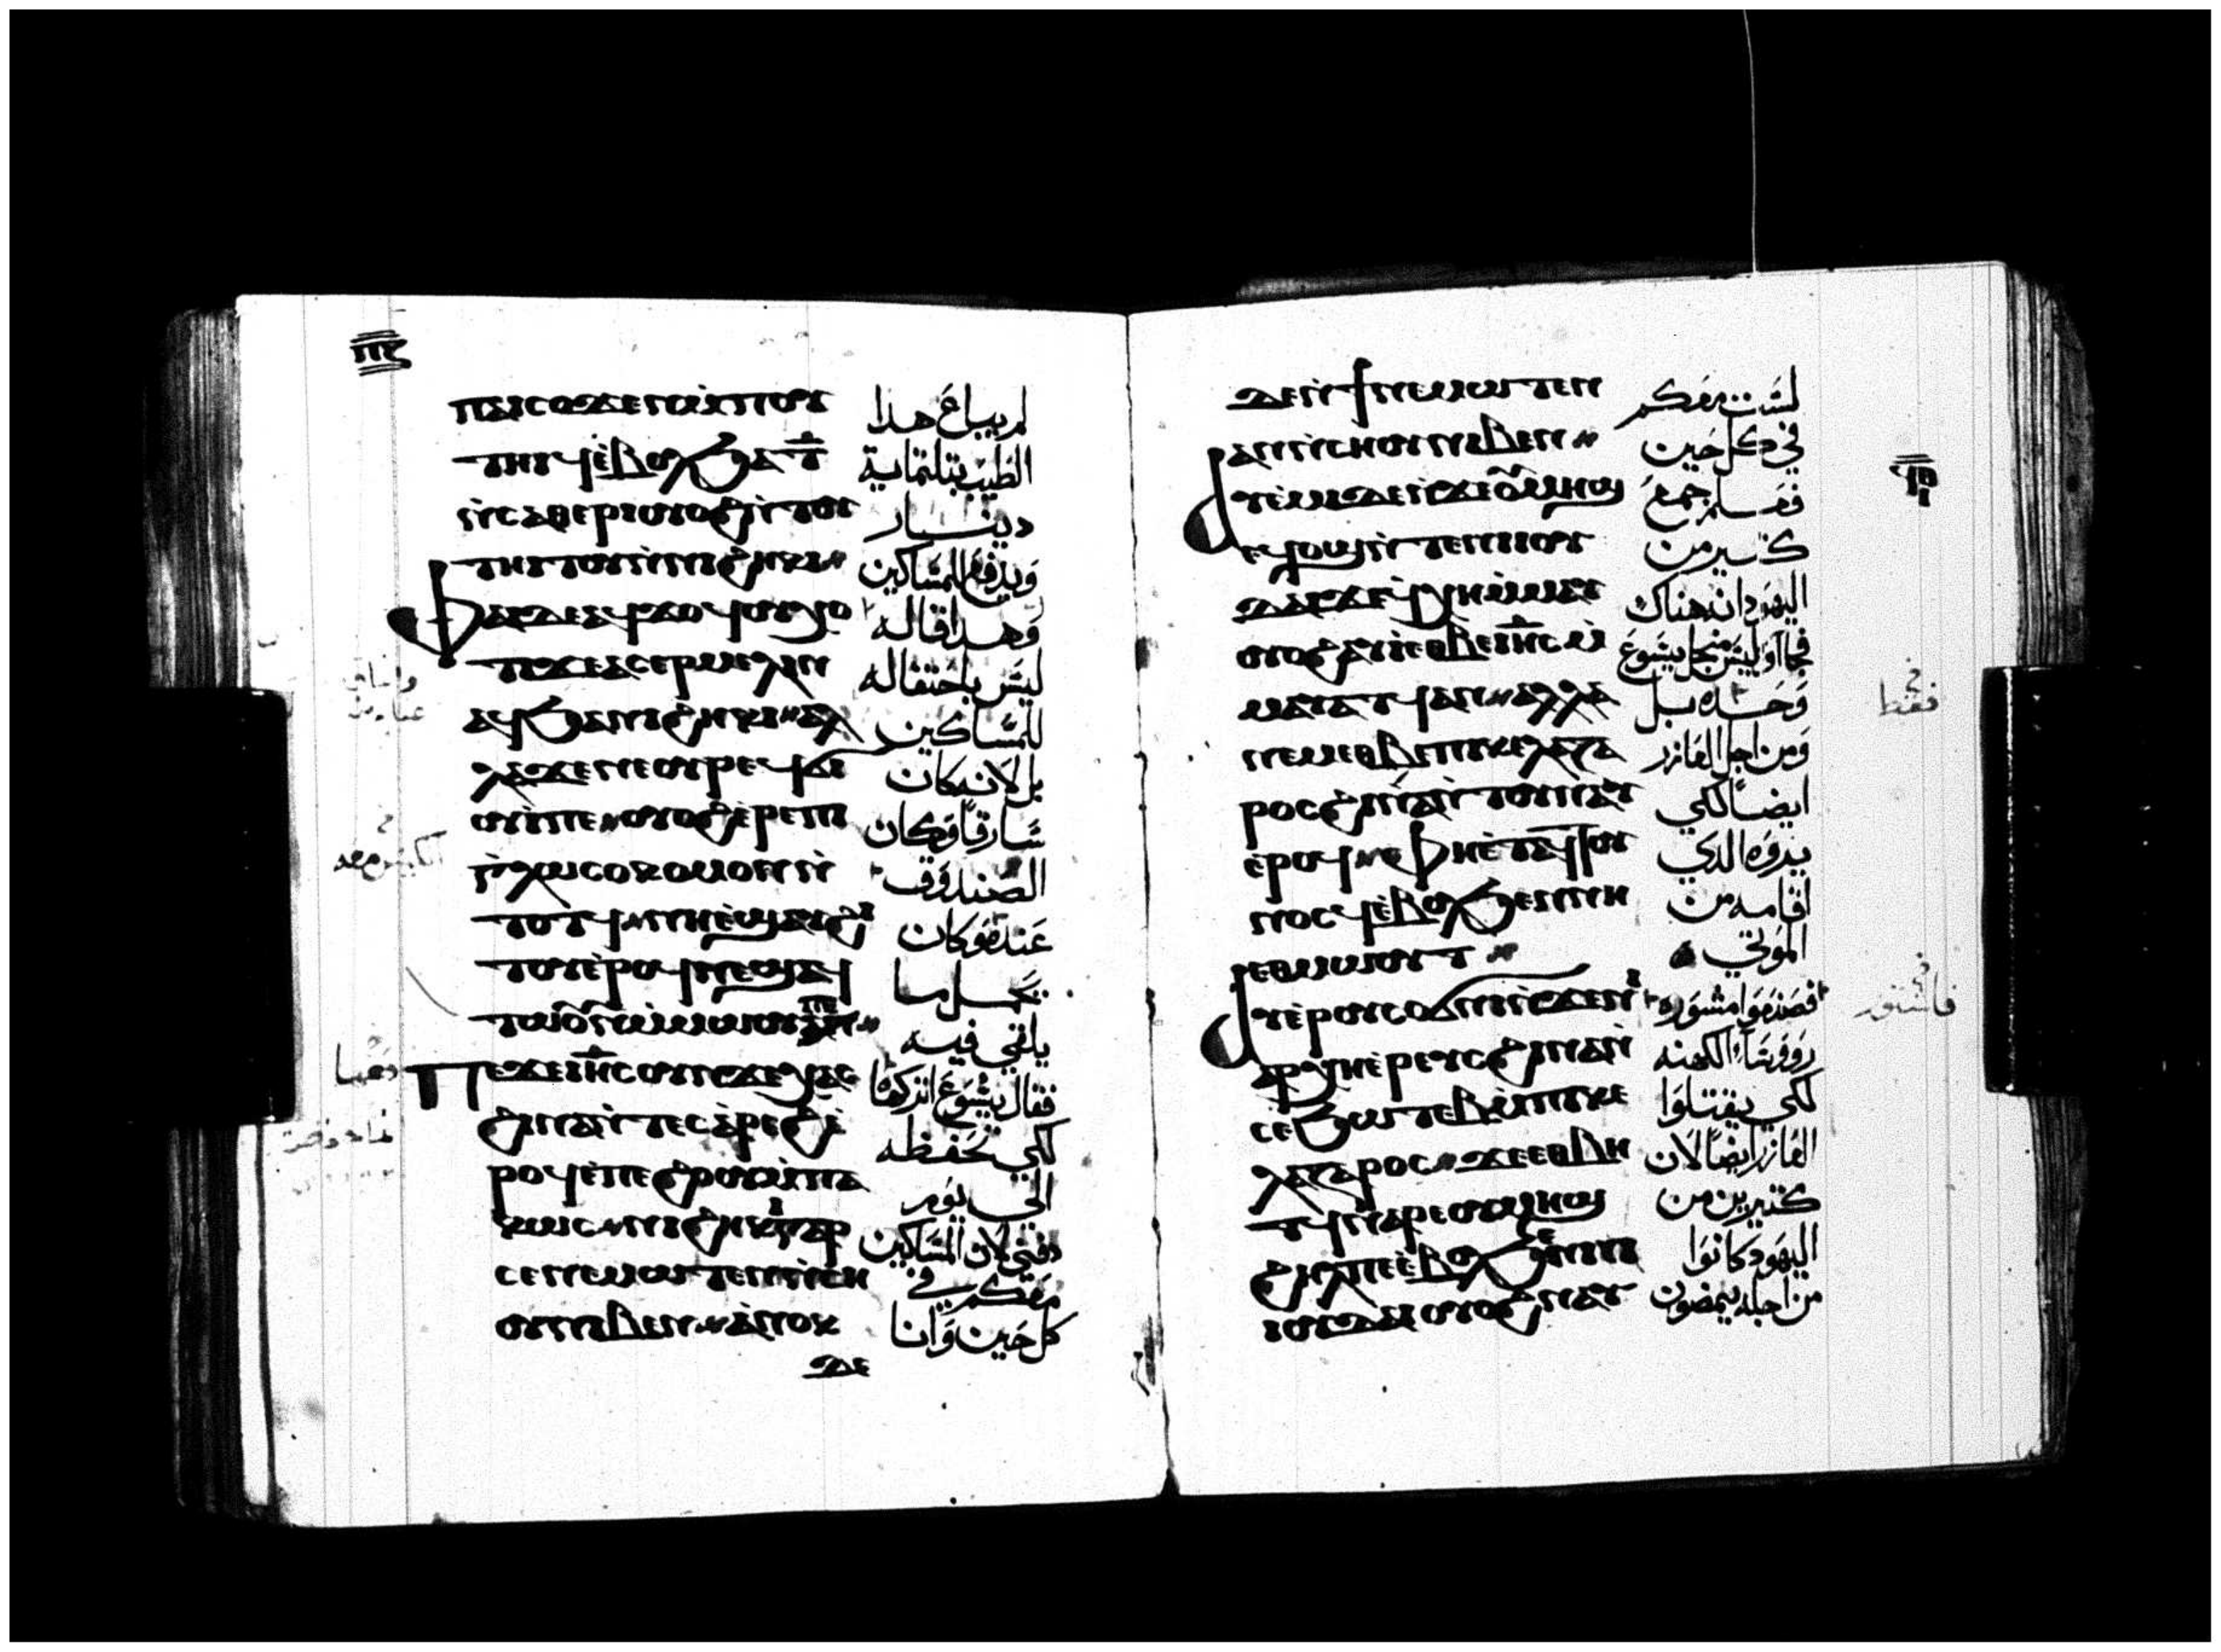 ⲡⲁⲓⲥⲟϫⲉⲛ ⲙ̀ⲡⲟⲩ
ⲧⲏⲓϥ ⲉ̀ⲃⲟⲗ ϧⲁ ⲧ̅
ⲛ̀ⲥⲁⲑⲉⲣⲓ ⲟⲩⲟϩ ⲛ̀ⲧⲟⲩ
ⲧⲏⲓⲧⲟⲩ ⲛ̀ⲛⲓϩⲏⲕⲓ
ⲫⲁⲓ ⲇⲉ ⲁϥϫⲟϥ ⲟⲩⲭⲟ
ⲧⲓ ϫⲉ ⲁⲥⲉⲣⲙⲉⲗⲓⲛ
ⲁϥ ϧⲁ ⲛⲓϩⲏⲕⲓ ⲁⲗ
ⲗⲁ ϫⲉ ⲛⲉ ⲟⲩⲣⲉϥϭⲓ
ⲟⲩⲓ̀ ⲡⲉ ⲟⲩⲟϩ ⲉ̀ⲣⲉ ⲡⲓ
ⲅⲗⲱⲥⲟⲕⲟⲙⲟⲛ ⲛ̀
ⲧⲟⲧϥ ⲛⲏ ⲉ̀ϣⲁⲩϩⲓ
ⲧⲟⲩ ⲉ̀ⲣⲟϥ ⲛⲉϣⲁϥ
ⲧⲱⲟⲩⲛ ⲙ̀ⲙⲱⲟⲩ ⲡⲉ
ⲡⲉϫⲉ ⲓⲏ̅ⲥ ⲟⲩⲛ ϫⲉ ⲭⲁⲥ
ϩⲓⲛⲁ ⲛ̀ⲧⲉⲥⲁ̀ⲣⲉϩ ⲉ̀
ⲣⲟϥ ⲉ̀ⲡⲉϩⲟⲟⲩ ⲙ̀ⲡⲁ
ⲕⲱⲥ ⲛⲓϩⲏⲕⲓ ⲅⲁⲣ
ⲥⲉⲛⲉⲙⲱⲧⲉⲛ ⲛ̀ⲥⲏ
ⲟⲩ ⲛⲓⲃⲉⲛ ⲁ̀ⲛⲟⲕ
ⲇⲉ
لم يباع هذا
الطيب بتلتماية
دينار
ويدفع للمساكين
وهذا قاله
ليس باحتفاله
للمساكين
بل لانه كان
سارقا وكان
الصندوق
عنده وكان
يحمل ما
يلقى فيه
فقال يسوع اتركها
لكي تحفظه
الى يوم
دفني لان المساكين
معكم في
كل حين وانا
ⲇⲉ ⲛ̀ϯⲛⲉⲙⲱⲧⲉⲛ
ⲁⲛ ⲛ̀ⲥⲏⲟⲩ ⲛⲓⲃⲉⲛ
ⲁⲩⲉ̀ⲙⲓ ⲇⲉ ⲛ̀ϫⲉ ⲟⲩⲙⲏϣ
ⲉϥⲟϣ ⲛ̀ⲧⲉ ⲛⲓⲓⲟⲩ
ⲇⲁⲓ ϫⲉ ϥⲭⲏ ⲙ̀ⲙⲁⲩ
ⲟⲩⲟϩ ⲁⲩⲓ̀ ⲉⲑⲃⲉ ⲓⲏ̅ⲥ ⲙ̀
ⲙⲁⲩⲁⲧϥ ⲁⲛ ⲁⲗⲗⲁ
ⲛⲉⲙ ⲉⲑⲃⲉ ⲡⲓⲕⲉⲗⲁⲍⲁ
ⲣⲟⲥ ϩⲓⲛⲁ ⲛ̀ⲧⲟⲩⲛⲁⲩ
ⲉ̀ⲣⲟϥ ⲫⲏ ⲉ̀ⲧⲁϥⲧⲟⲩ
ⲛⲟⲥϥ ⲉ̀ⲃⲟⲗ ϧⲉⲛ ⲛⲏ
ⲉⲑⲙⲱⲟⲩⲧ
ⲁⲩⲉ̀ⲣⲟⲩⲥⲟϭⲛⲓ ⲛ̀ϫⲉ ⲛⲓ
ⲁⲣⲭⲏⲉ̀ⲣⲉⲩⲥ ϩⲓⲛⲁ ⲛ̀
ⲥⲉϧⲱⲧⲉⲃ ⲙ̀ⲡⲓⲕⲉ
ⲗⲁⲍⲁⲣⲟⲥ ϫⲉ ⲉⲑⲃⲏ
ⲧϥ ⲛⲁⲣⲉ ⲟⲩⲙⲏϣ
ϩⲏⲗ ⲡⲉ ⲉ̀ⲃⲟⲗ ϧⲉⲛ ⲛⲓ
ⲓⲟⲩⲇⲁⲓ ⲟⲩⲟϩ ⲛⲁⲩ
لست معكم
في كل حين
فعلم جمع
كثير من
اليهود انه هناك
فجاؤا ليس من اجل يسوع
وحده بل
ومن اجل العازر
ايضا لكي
ينظروه الذي
اقامه من
الموتى
روؤسا الكهنه
لكي يقتلوا
العازر ايضا لان
كثيرين من
اليهود كانوا
من اجله يمضون
فقط